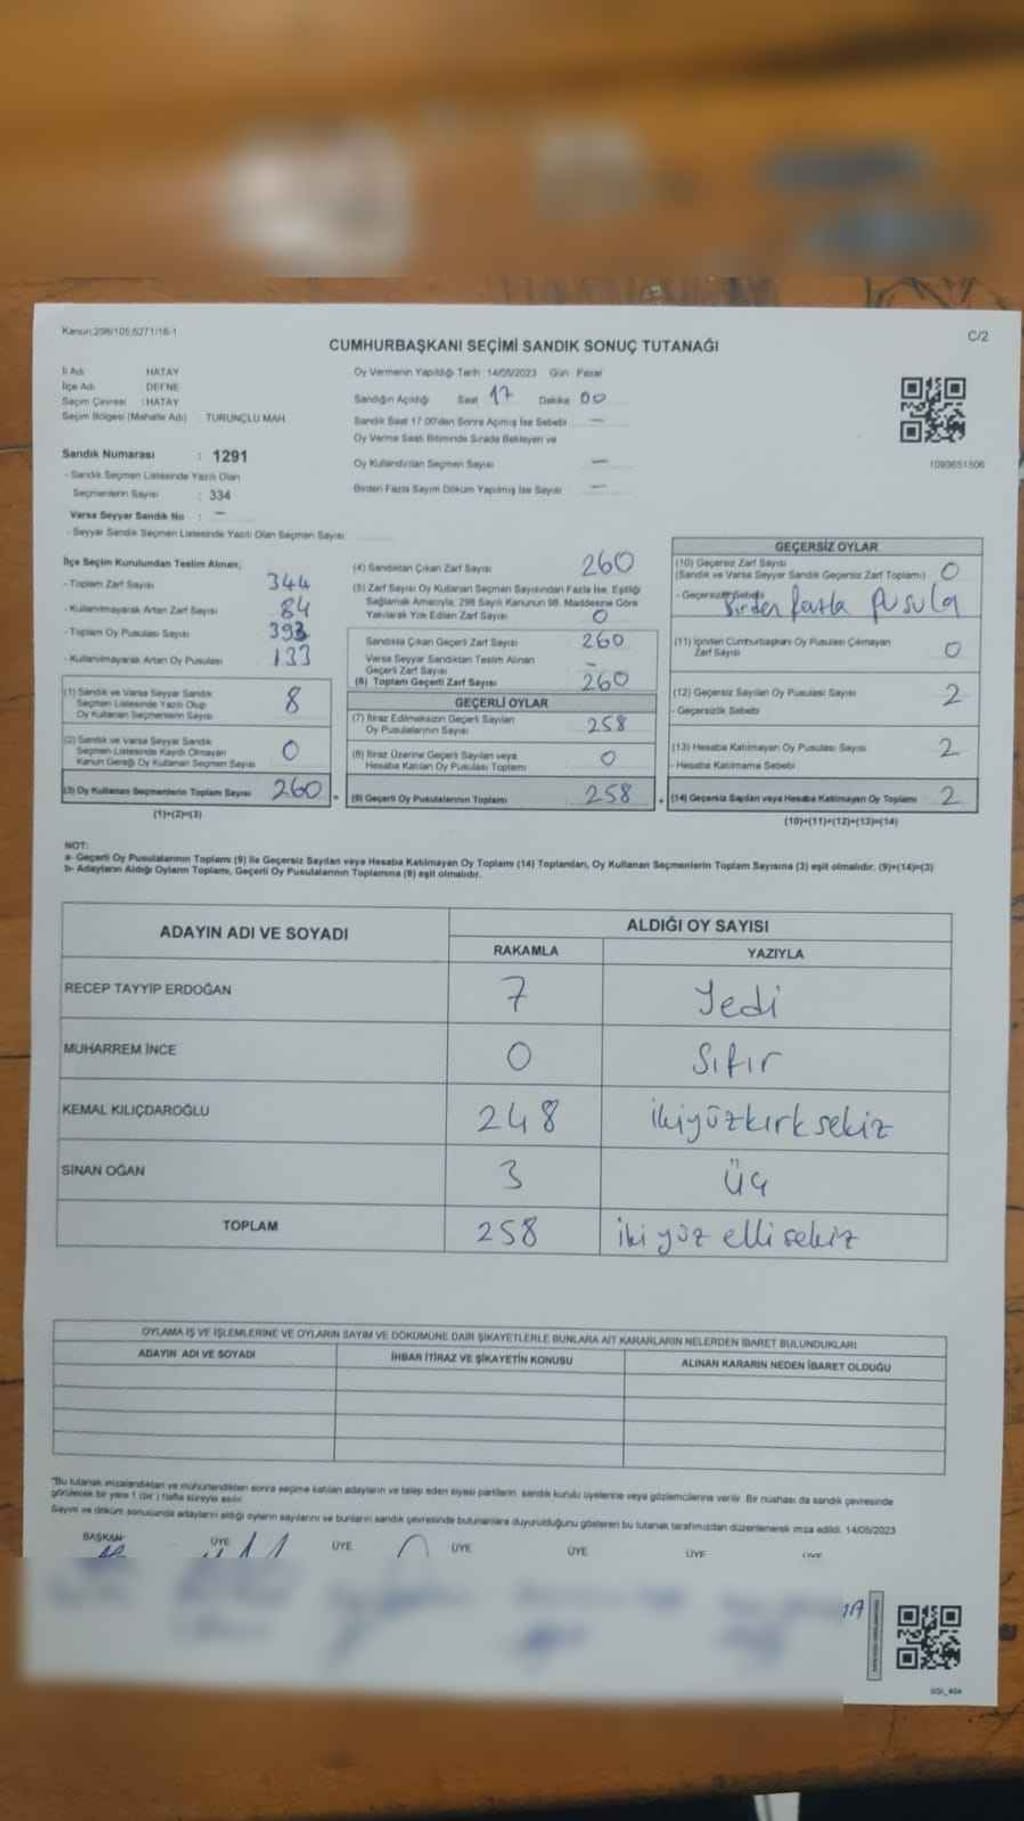 Kanun:298/105;6271/16-1
C/2
CUMHURBAŞKANI SEÇİMİ SANDIK SONUÇ TUTANAĞI
İl Adı HATAY
İlçe Adı DEFNE
Seçim Çevresi : HATAY
Seçim Bölgesi (Mahalle Adı) TURUNÇLU MAH.
Sandık Numarası : 1291
- Sandık Seçmen Listesinde Yazılı Olan
Seçmenlerin Sayısı : 334
Varsa Seyyar Sandık No : —
- Seyyar Sandık Seçmen Listesinde Yazılı Olan Seçmen Sayısı
Oy Vermenin Yapıldığı Tarih : 14/05/2023 Gün : Pazar
Sandığın Açıldığı Saat 17 Dakika 00
Sandık Saat 17.00'den Sonra Açılmış İse Sebebi —
Oy Verme Saati Bitiminde Sırada Bekleyen ve
Oy Kullandırılan Seçmen Sayısı —
Birden Fazla Sayım Döküm Yapılmış İse Sayısı —
1093651506
İlçe Seçim Kurulundan Teslim Alınan;
- Toplam Zarf Sayısı 344
- Kullanılmayarak Artan Zarf Sayısı 84
- Toplam Oy Pusulası Sayısı 393
- Kullanılmayarak Artan Oy Pusulası 133
(1) Sandık ve Varsa Seyyar Sandık
Seçmen Listesinde Yazılı Olup
Oy Kullanan Seçmenlerin Sayısı 8
(2) Sandık ve Varsa Seyyar Sandık
Seçmen Listesinde Kaydı Olmayan
Kanun Gereği Oy Kullanan Seçmen Sayısı 0
(3) Oy Kullanan Seçmenlerin Toplam Sayısı 260
(1)+(2)=(3)
(4) Sandıktan Çıkan Zarf Sayısı 260
(5) Zarf Sayısı Oy Kullanan Seçmen Sayısından Fazla İse, Eşitliği
Sağlamak Amacıyla, 298 Sayılı Kanunun 98. Maddesine Göre
Yakılarak Yok Edilen Zarf Sayısı 0
Sandıkta Çıkan Geçerli Zarf Sayısı 260
Varsa Seyyar Sandıktan Teslim Alınan
Geçerli Zarf Sayısı —
(6) Toplam Geçerli Zarf Sayısı 260
GEÇERLİ OYLAR
(7) İtiraz Edilmeksizin Geçerli Sayılan
Oy Pusulalarının Sayısı 258
(8) İtiraz Üzerine Geçerli Sayılan veya
Hesaba Katılan Oy Pusulası Toplamı 0
(9) Geçerli Oy Pusulalarının Toplamı 258
GEÇERSİZ OYLAR
(10) Geçersiz Zarf Sayısı
(Sandık ve Varsa Seyyar Sandık Geçersiz Zarf Toplamı) 0
- Geçersizlik Sebebi Birden fazla pusula
(11) İçinden Cumhurbaşkanı Oy Pusulası Çıkmayan
Zarf Sayısı 0
(12) Geçersiz Sayılan Oy Pusulası Sayısı 2
- Geçersizlik Sebebi
(13) Hesaba Katılmayan Oy Pusulası Sayısı 2
- Hesaba Katılmama Sebebi
(14) Geçersiz Sayılan veya Hesaba Katılmayan Oy Toplamı 2
(10)+(11)+(12)+(13)=(14)
NOT:
a- Geçerli Oy Pusulalarının Toplamı (9) ile Geçersiz Sayılan veya Hesaba Katılmayan Oy Toplamı (14) Toplamları, Oy Kullanan Seçmenlerin Toplam Sayısına (3) eşit olmalıdır. (9)+(14)=(3)
b- Adayların Aldığı Oyların Toplamı, Geçerli Oy Pusulalarının Toplamına (9) eşit olmalıdır.
ADAYIN ADI VE SOYADI ALDIĞI OY SAYISI
RAKAMLA YAZIYLA
RECEP TAYYİP ERDOĞAN 7 Yedi
MUHARREM İNCE 0 Sıfır
KEMAL KILIÇDAROĞLU 248 ikiyüzkırk sekiz
SİNAN OĞAN 3 üç
TOPLAM 258 iki yüz elli sekiz
OYLAMA İŞ VE İŞLEMLERİNE VE OYLARIN SAYIM VE DÖKÜMÜNE DAİR ŞİKAYETLERLE BUNLARA AİT KARARLARIN NELERDEN İBARET BULUNDUKLARI
ADAYIN ADI VE SOYADI İHBAR İTİRAZ VE ŞİKAYETİN KONUSU ALINAN KARARIN NEDEN İBARET OLDUĞU
"Bu tutanak imzalandıktan ve mühürlendikten sonra seçime katılan adayların ve talep eden siyasi partilerin, sandık kurulu üyelerine veya gözlemcilerine verilir. Bir nüshası da sandık çevresinde
görülecek bir yere 1 (bir) hafta süreyle asılır.
Sayım ve döküm sonucunda adayların aldığı oyların sayılarını ve bunların sandık çevresinde bulunanlara duyurulduğunu gösteren bu tutanak tarafımızdan düzenlenerek imza edildi. 14/05/2023
BAŞKAN ÜYE ÜYE ÜYE ÜYE ÜYE ÜYE